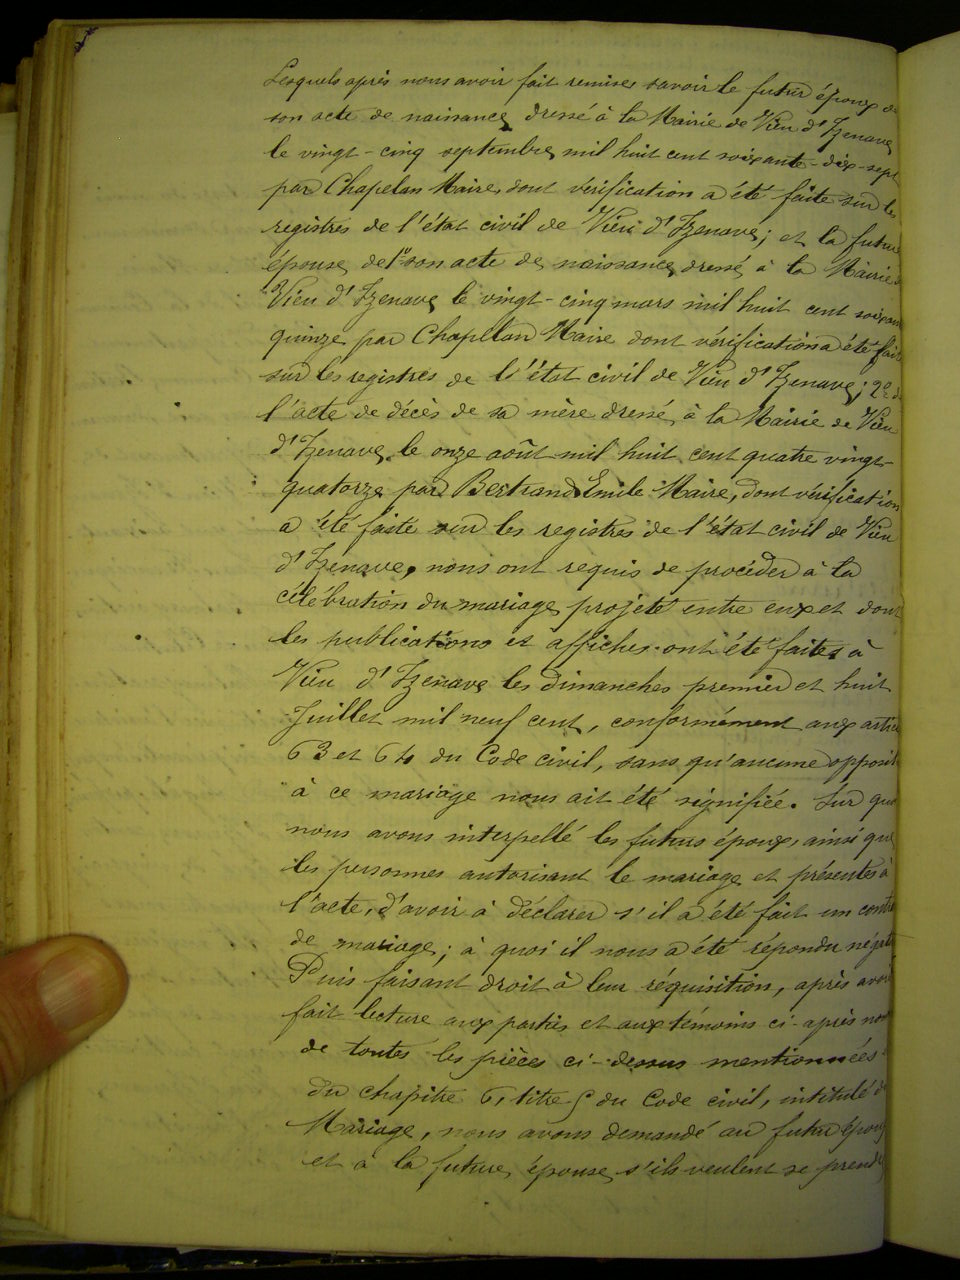 Lesquels après nous avoir fait remises savoir le futur époux de
son acte de naissance dressé à la Mairie de Vieu d'Izenave
le vingt-cinq septembre mil huit cent soixante-dix-sept
par Chapelan Maire, dont vérification a été faite sur les
registres de l'état civil de Vieu d'Izenave; et la future
épouse, de 1° son acte de naissance dressé à la Mairie de
Vieu d'Izenave le vingt-cinq mars mil huit cent soixan
quinze par Chapelan Maire dont vérification a été fait
sur les registres de l'état civil de Vieu d'Izenave; 2° de
l'acte de décès de sa mère dressé à la Mairie de Vieu
d'Izenave le onze août mil huit cent quatre vingt-
quatorze par Bertrand Emile Maire, dont vérification
a été faite sur les registres de l'état civil de Vieu
d'Izenave, nous ont requis de procéder à la
célébration du mariage projeté entre eux et dont
les publications et affiches ont été faites à
Vieu d'Izenave les dimanches premier et huit
Juillet mil neuf cent, conformément aux artic
63 et 64 du Code civil, sans qu'aucune opposit
à ce mariage nous ait été signifiée. Sur quoi
nous avons interpellé les futurs époux, ainsi que
les personnes autorisant le mariage et présentes à
l'acte, d'avoir à déclarer s'il a été fait un contra
de mariage; à quoi il nous a été répondu négat
Puis faisant droit à leur réquisition, après avoir
fait lecture aux parties et aux témoins ci-après nom
de toutes les pièces ci-dessus mentionnées
du chapitre 6, titre 5 du Code civil, intitulé du
Mariage, nous avons demandé au futur époux
et à la future épouse s'ils veulent se prendre